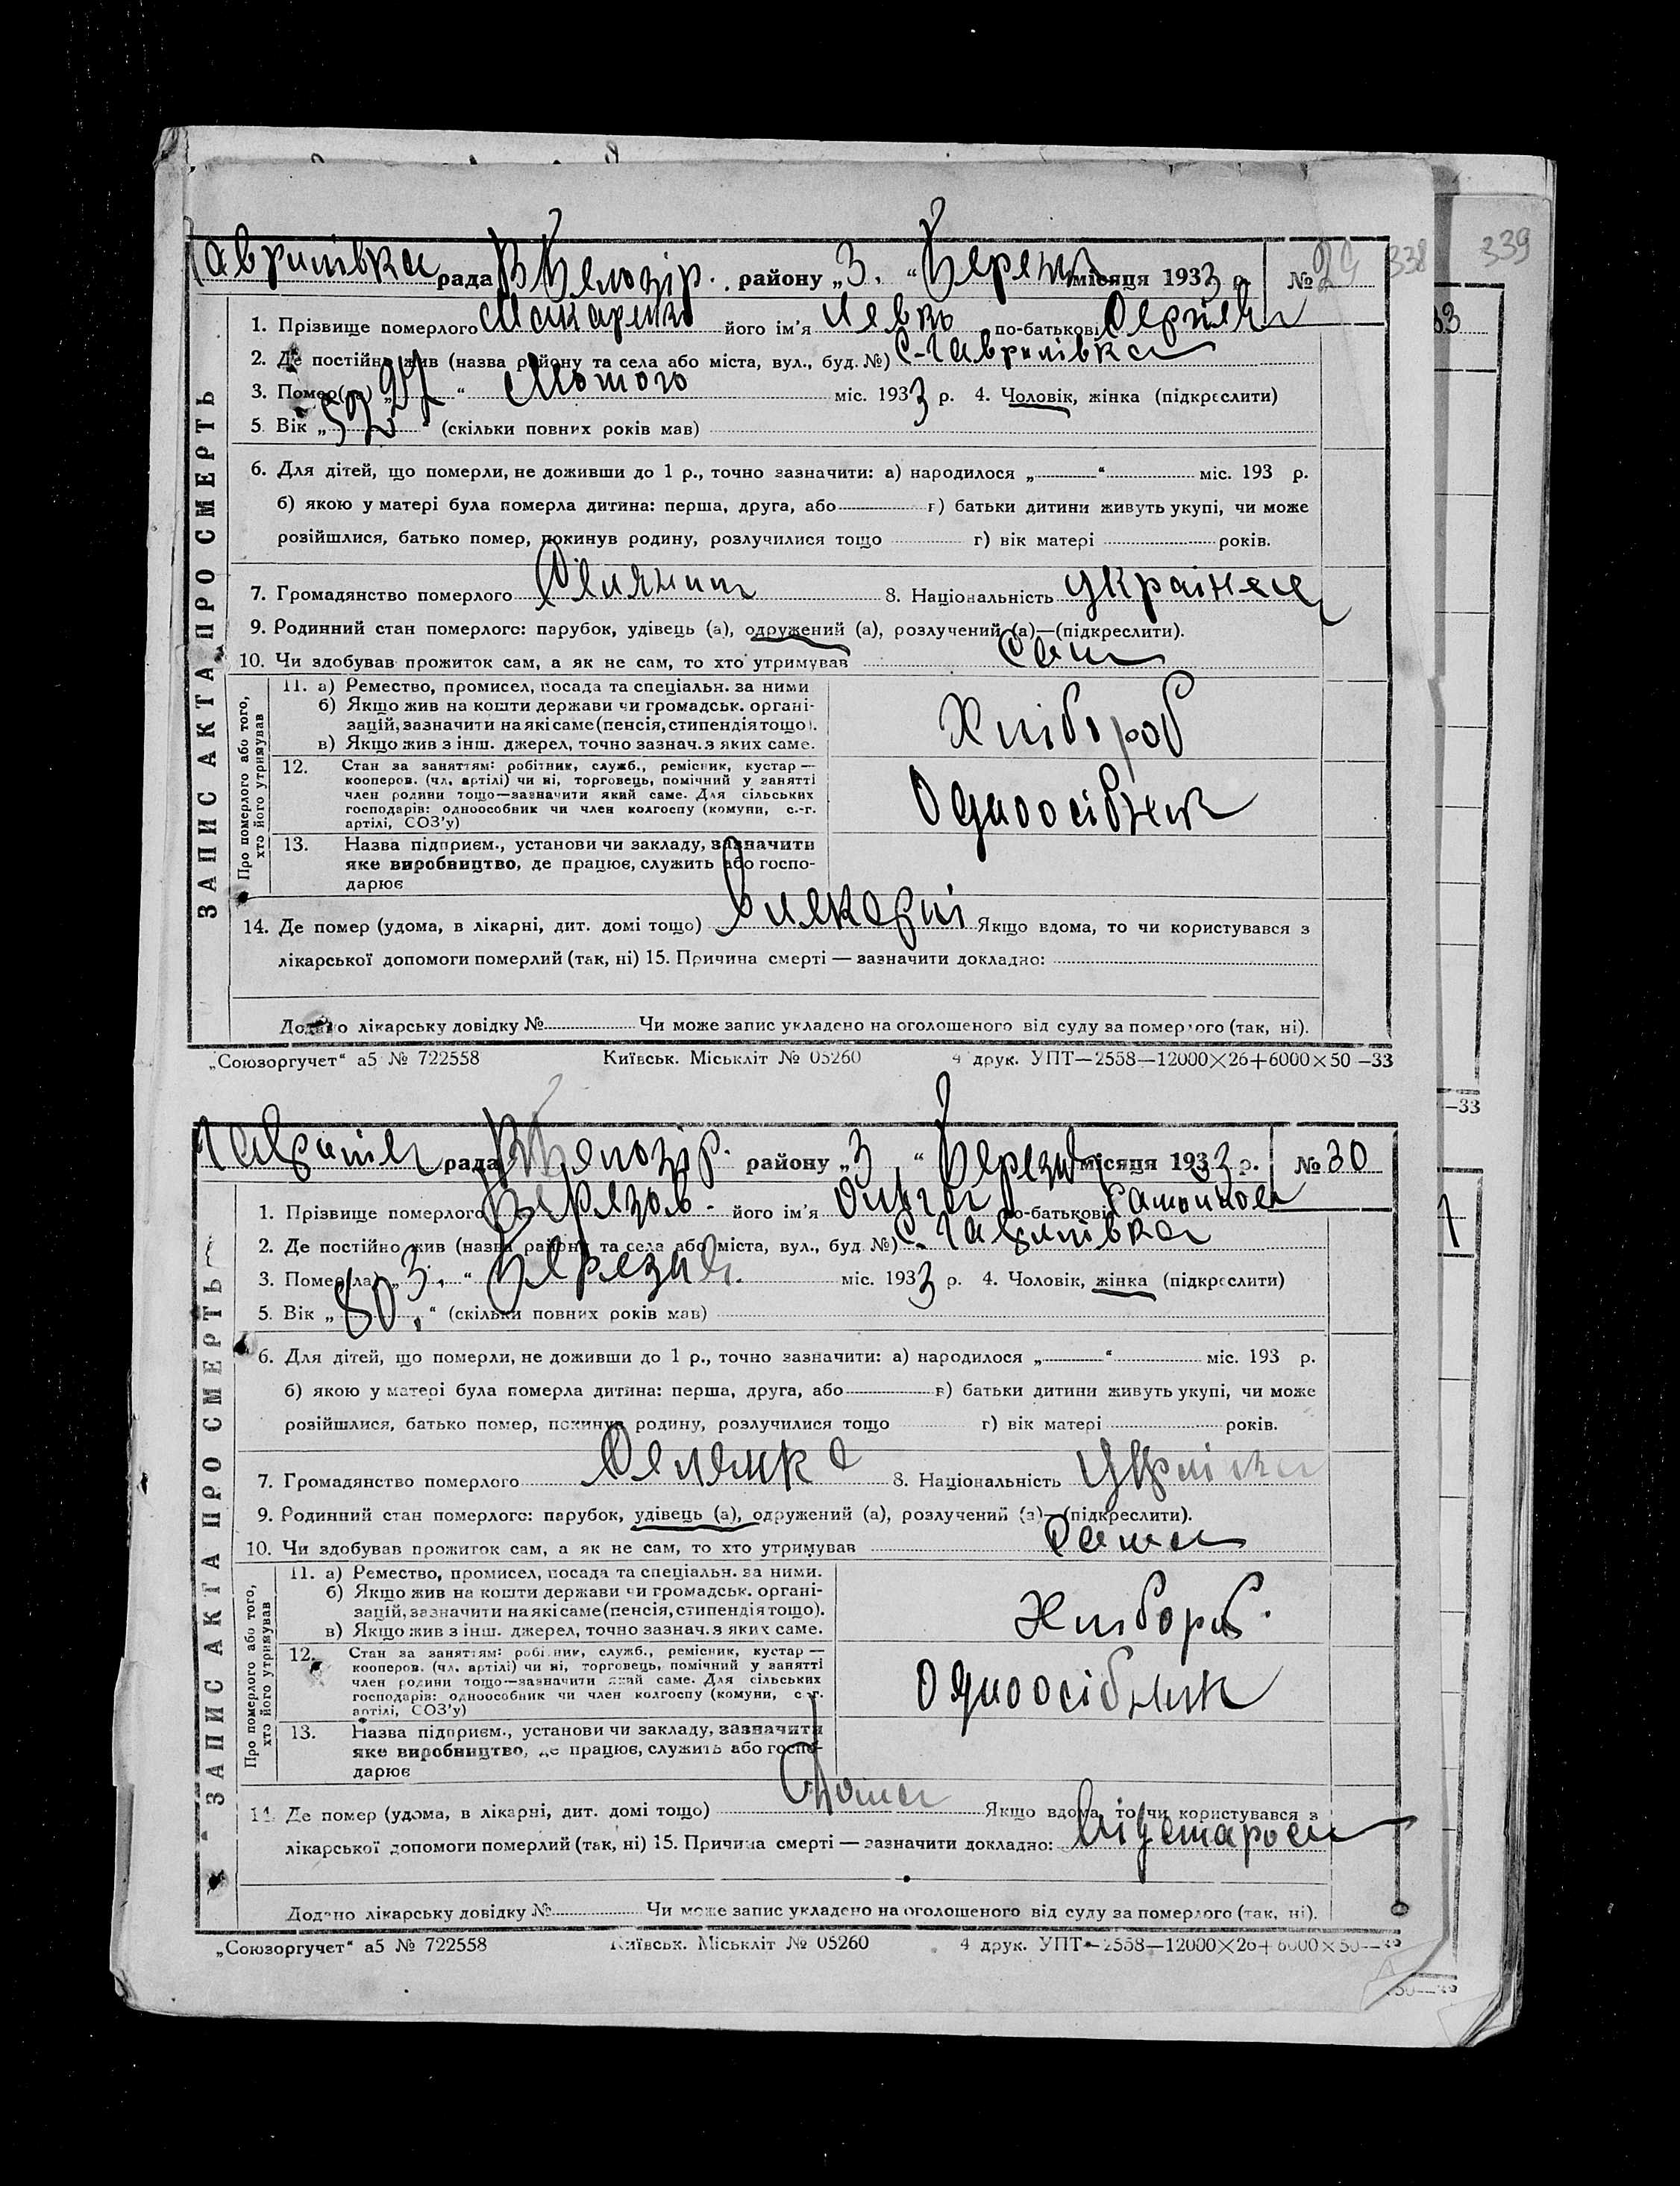 338 339
Гаврилівка рада району „3.“ місяця 1933 р. № 29
1. Прізвище померлого Макаренко його ім'я Левко по-батькові
2. Де постійно жив (назва району та села або міста, вул., буд. №) С. Гаврилівка
3. Помер(ла) „27“ Лютого міс. 1933 р. 4. Чоловік, жінка (підкреслити)
5. Вік „52“ (скільки повних років мав)
6. Для дітей, що померли, не доживши до 1 р., точно зазначити: а) народилося „ “ міс. 193 р.
б) якою у матері була померла дитина: перша, друга, або г) батьки дитини живуть укупі, чи може
розійшлися, батько помер, покинув родину, розлучилися тощо г) вік матері років.
7. Громадянство померлого Селянин 8. Національність Українець
9. Родинний стан померлого: парубок, удівець (а), одружений (а), розлучений (а)—(підкреслити).
10. Чи здобував прожиток сам, а як не сам, то хто утримував Сам
ЗАПИС АКТА ПРО СМЕРТЬ
Про померлого або того, хто його утримував
11. а) Ремество, промисел, посада та спеціальн. за ними
б) Якщо жив на кошти держави чи громадськ. органі-
зацій, зазначити на які саме (пенсія, стипендія тощо).
в) Якщо жив з інш. джерел, точно зазнач. з яких саме.
Хлібороб
12. Стан за заняттям: робітник, служб., ремісник, кустар —
кооперов. (чл. артілі) чи ні, торговець, помічний у занятті
член родини тощо—зазначити який саме. Для сільських
господарів: одноособник чи член колгоспу (комуни, с.-г.
артілі, СОЗ'у)
Одноосібник
13. Назва підприєм., установи чи закладу, зазначити
яке виробництво, де працює, служить або госпо-
дарює
14. Де помер (удома, в лікарні, дит. домі тощо) Якщо вдома, то чи користувався з
лікарської допомоги померлий (так, ні) 15. Причина смерті — зазначити докладно:
Додано лікарську довідку № Чи може запис укладено на оголошеного від суду за померлого (так, ні).
„Союзоргучет“ а5 № 722558 Київськ. Міськліт № 05260 4 друк. УПТ—2558—12000×26+6000×50—33
—33
рада району „3.“ місяця 1933 р. № 30
1. Прізвище померлого його ім'я Ольга по-батькові
2. Де постійно жив (назва району та села або міста, вул., буд. №) С. Гаврилівка
3. Помер(ла) „3.“ Березня. міс. 1933 р. 4. Чоловік, жінка (підкреслити)
5. Вік „80.“ (скільки повних років мав)
6. Для дітей, що померли, не доживши до 1 р., точно зазначити: а) народилося „ “ міс. 193 р.
б) якою у матері була померла дитина: перша, друга, або в) батьки дитини живуть укупі, чи може
розійшлися, батько помер, покинув родину, розлучилися тощо г) вік матері років.
7. Громадянство померлого Селянка 8. Національність
9. Родинний стан померлого: парубок, удівець (а), одружений (а), розлучений (а)—(підкреслити).
10. Чи здобував прожиток сам, а як не сам, то хто утримував Сама
ЗАПИС АКТА ПРО СМЕРТЬ
Про померлого або того, хто його утримував
11. а) Ремество, промисел, посада та спеціальн. за ними.
б) Якщо жив на кошти держави чи громадськ. органі-
зацій, зазначити на які саме (пенсія, стипендія тощо).
в) Якщо жив з інш. джерел, точно зазнач. з яких саме.
Хлібороб.
12. Стан за заняттям: робітник, служб., ремісник, кустар —
кооперов. (чл. артілі) чи ні, торговець, помічний у занятті
член родини тощо—зазначити який саме. Для сільських
господарів: одноособник чи член колгоспу (комуни, с.-г.
артілі, СОЗ'у)
Одноосібник
13. Назва підприєм., установи чи закладу, зазначити
яке виробництво, де працює, служить або госпо-
дарює
14. Де помер (удома, в лікарні, дит. домі тощо) Дома Якщо вдома, то чи користувався з
лікарської допомоги померлий (так, ні) 15. Причина смерті — зазначити докладно:
Додано лікарську довідку № Чи може запис укладено на оголошеного від суду за померлого (так, ні).
„Союзоргучет“ а5 № 722558 Київськ. Міськліт № 05260 4 друк. УПТ—2558—12000×26+6000×50—33